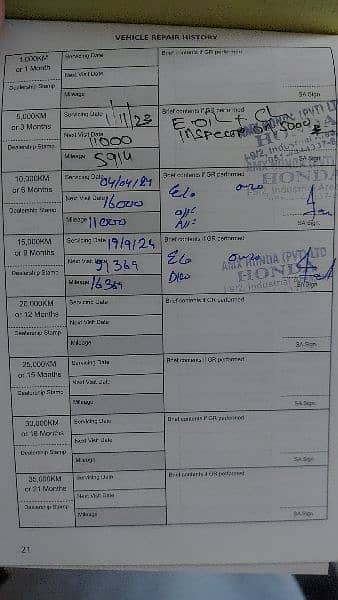 VEHICLE REPAIR HISTORY
1,000KM
or 1 Month
Dealership Stamp
Servicing Date
Next Visit Date
Mileage
Brief contents if GR performed
SA Sign
5,000KM
or 3 Months
Dealership Stamp
Servicing Date 1/11/23
Next Visit Date 11000
Mileage 5914
Brief contents if GR performed
E.OIL +
Inspection 5000
(PVT) LTD
SA Sign
10,000KM
or 6 Months
Dealership Stamp
Servicing Date 04/04/24
Next Visit Date 16000
Mileage 11000
Brief contents if GR performed
HONDA
SA Sign
15,000KM
or 9 Months
Dealership Stamp
Servicing Date 19/9/24
Next Visit Date 21369
Mileage 16369
Brief contents if GR performed
HONDA (PVT) LTD
HONDA
Industrial
SA Sign
20,000KM
or 12 Months
Dealership Stamp
Servicing Date
Next Visit Date
Mileage
Brief contents if GR performed
SA Sign
25,000KM
or 15 Months
Dealership Stamp
Servicing Date
Next Visit Date
Mileage
Brief contents if GR performed
SA Sign
30,000KM
or 18 Months
Dealership Stamp
Servicing Date
Next Visit Date
Mileage
Brief contents if GR performed
SA Sign
35,000KM
or 21 Months
Dealership Stamp
Servicing Date
Next Visit Date
Mileage
Brief contents if GR performed
SA Sign
21